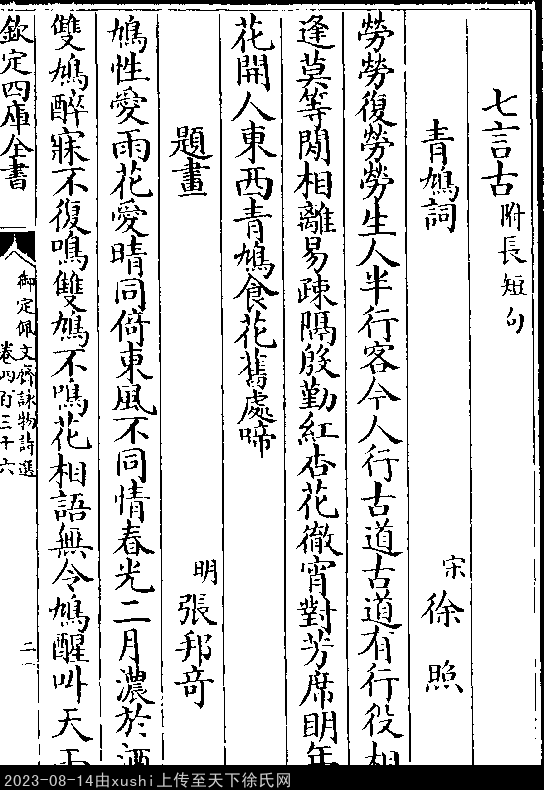 七言古附長短句
青鳩詞 宋 徐照
勞勞復勞勞生人半行客今人行古道古道有行役相
逢莫等閒相離易疎隔殷勤紅杏花徹宵對芳席明年
花開人東西青鳩食花舊處啼
題畫 明 張邦竒
鳩性愛雨花愛晴同倚東風不同情春光二月濃於酒
雙鳩醉寐不復鳴雙鳩不鳴花相語無令鳩醒叫天雨
欽定四庫全書
御定佩文齋詠物詩選
卷四百三十六
二
2023-08-14由xushi上传至天下徐氏网